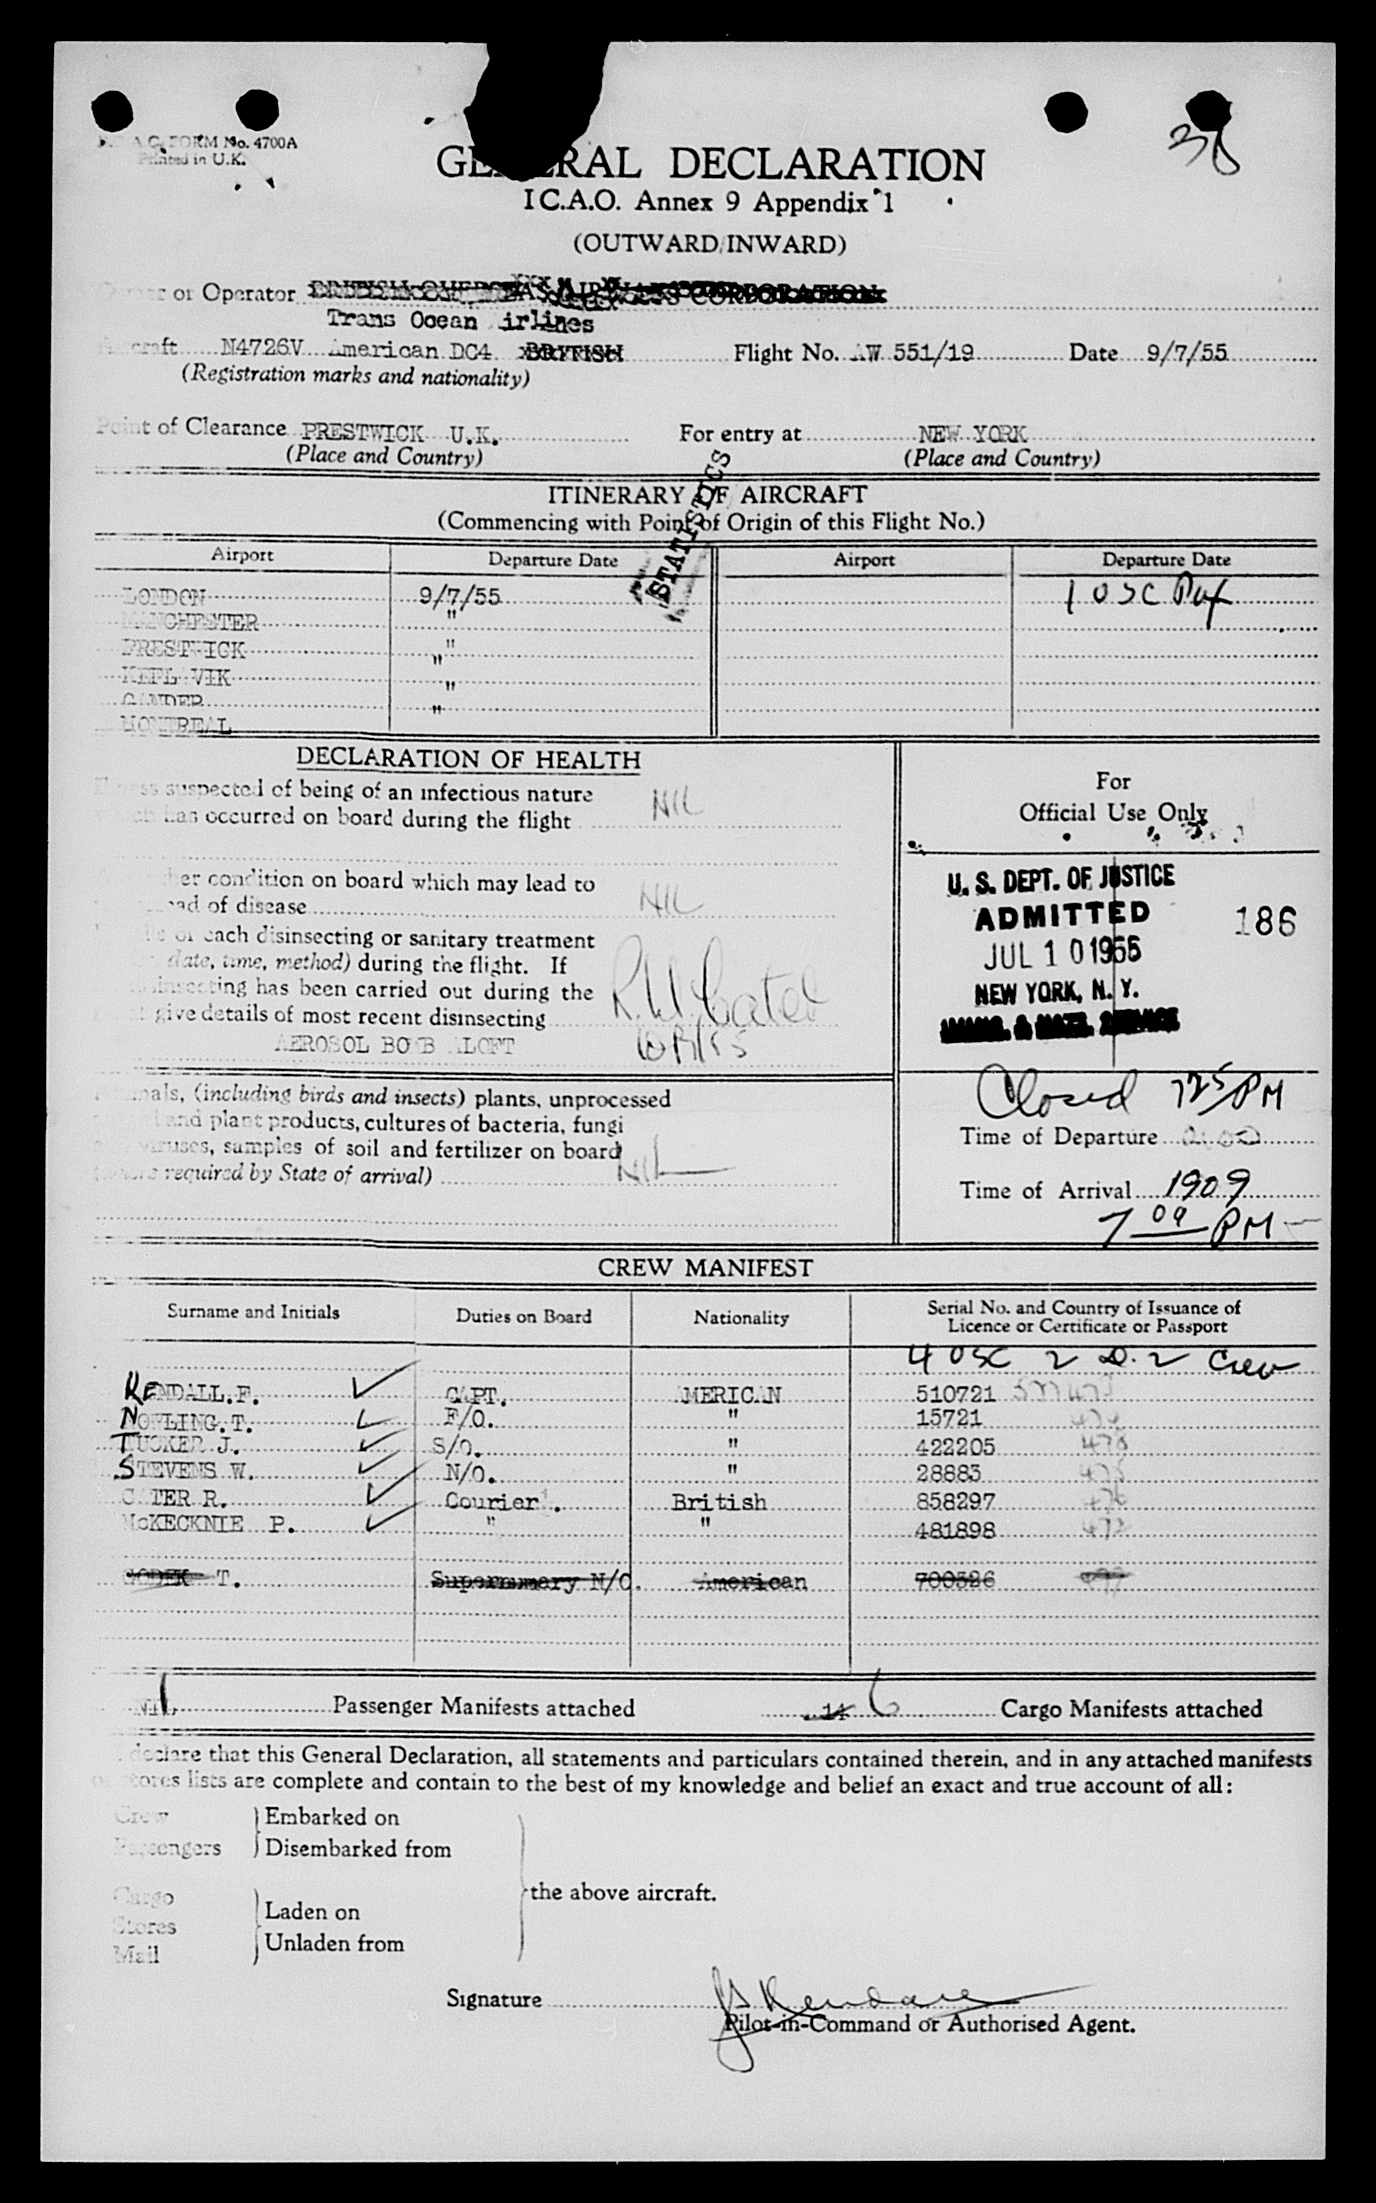 38
FORM No. 4700A
Printed in U.K.
GENERAL DECLARATION
I C.A.O. Annex 9 Appendix 1
(OUTWARD/INWARD)
or Operator BRITISH OVERSEAS AIRWAYS CORPORATION
Trans Ocean irlines
craft N4726V American DC4 BRITISH Flight No. AW 551/19 Date 9/7/55
(Registration marks and nationality)
Point of Clearance PRESTWICK U.K. For entry at NEW YORK
(Place and Country) (Place and Country)
STATISTICS
ITINERARY OF AIRCRAFT
(Commencing with Point of Origin of this Flight No.)
Airport Departure Date Airport Departure Date
LONDON 9/7/55 1 OSC
MANCHESTER "
PRESTWICK "
KEFLAVIK "
GANDER "
MONTREAL "
DECLARATION OF HEALTH
suspected of being of an infectious nature
has occurred on board during the flight NIL
her condition on board which may lead to
ad of disease NIL
of each disinsecting or sanitary treatment
date, time, method) during the flight. If
disinsecting has been carried out during the
give details of most recent disinsecting
AEROSOL BOMB ALOFT
R. W. Cater
10/7/55
For
Official Use Only
U. S. DEPT. OF JUSTICE
ADMITTED 186
JUL 10 1955
NEW YORK, N. Y.
IMMIG. & NATZ. SERVICE
mals, (including birds and insects) plants, unprocessed
and plant products, cultures of bacteria, fungi
viruses, samples of soil and fertilizer on board
required by State of arrival) NIL
Closed 725 PM
Time of Departure
Time of Arrival 1909
7 09 PM
CREW MANIFEST
Surname and Initials Duties on Board Nationality Serial No. and Country of Issuance of
Licence or Certificate or Passport
4 OSC 2 D.2 Crew
KENDALL.F. CAPT. AMERICAN 510721
NOWLING.T. F/O. " 15721
TUCKER J. S/O. " 422205
STEVENS W. N/O. " 28883
CATER R. Courier . British 858297
McKECKNIE P. " " 481898
GODEK T. Supernumary N/O. American 700326
Passenger Manifests attached 14 6 Cargo Manifests attached
declare that this General Declaration, all statements and particulars contained therein, and in any attached manifests
or stores lists are complete and contain to the best of my knowledge and belief an exact and true account of all:
Crew Embarked on
Passengers Disembarked from
the above aircraft.
Cargo
Stores Laden on
Mail Unladen from
Signature Kendall
Pilot-in-Command or Authorised Agent.